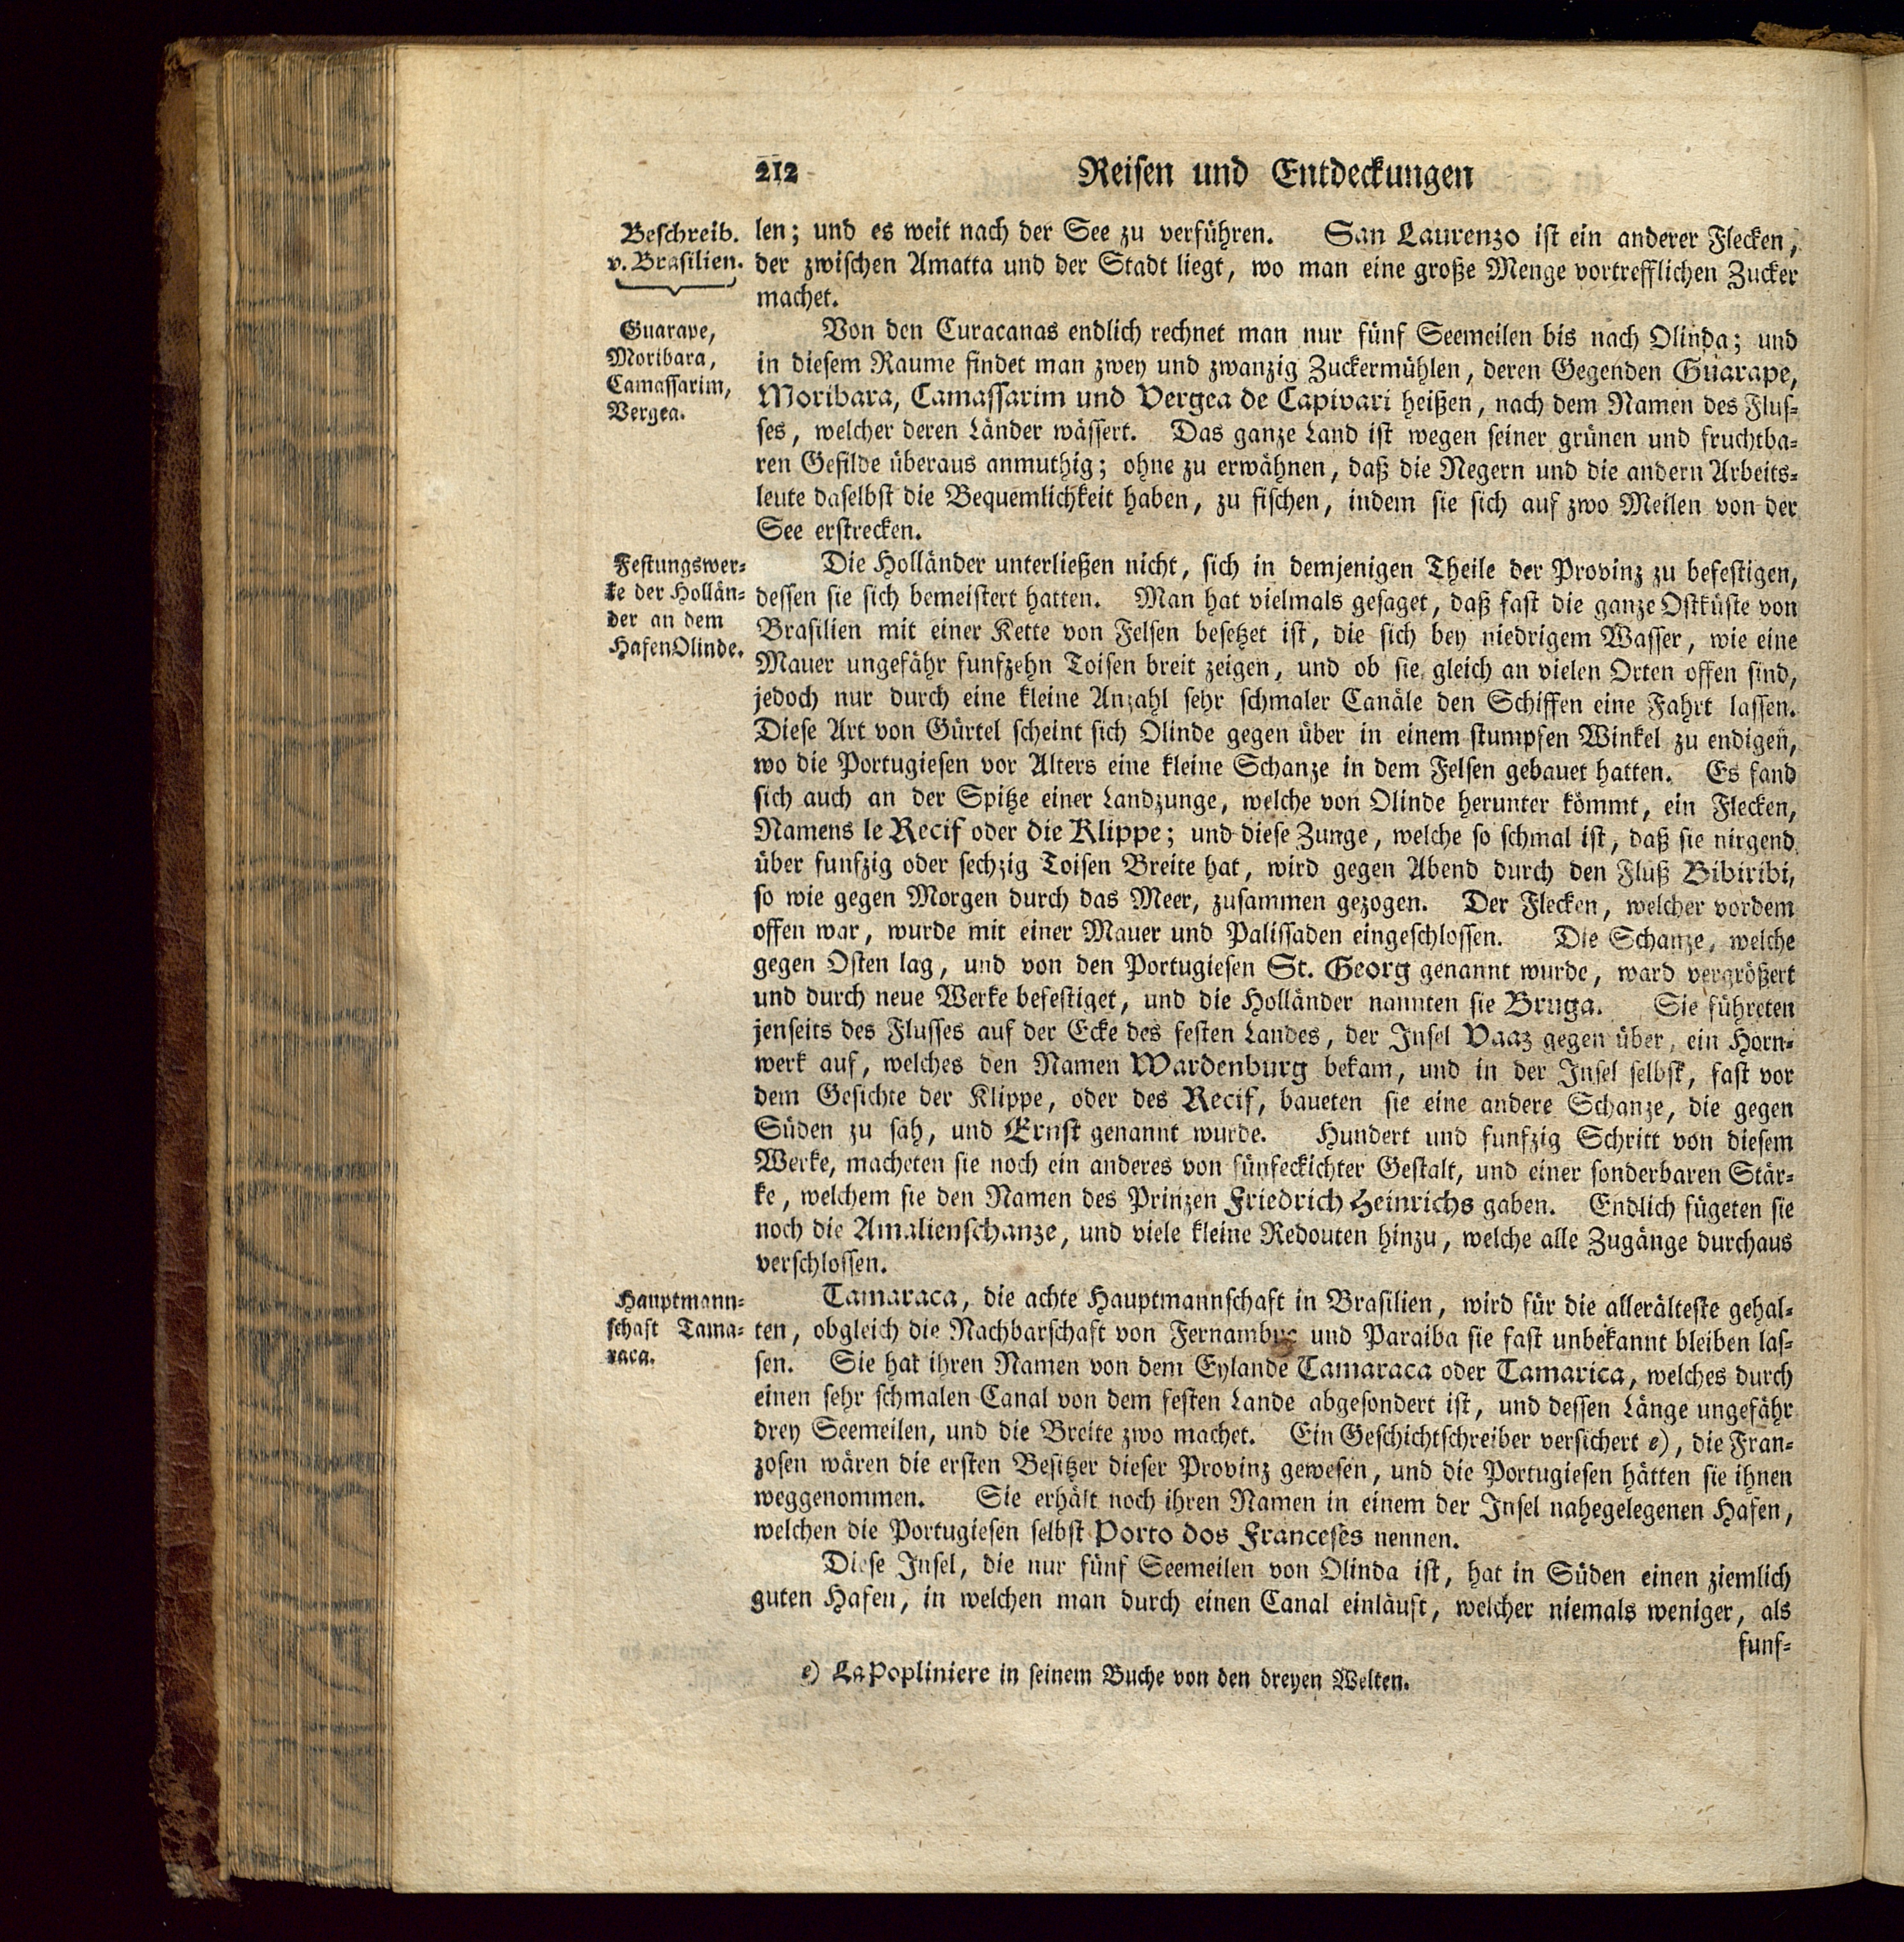 212 Reisen und Entdeckungen
Beschreib.
v. Brasilien.
len; und es weit nach der See zu verführen. San Laurenzo ist ein anderer Flecken,
der zwischen Amatta und der Stadt liegt, wo man eine große Menge vortrefflichen Zucker
machet.
Guarape,
Moribara,
Camassarim,
Vergea.
Von den Curacanas endlich rechnet man nur fünf Seemeilen bis nach Olinda; und
in diesem Raume findet man zwey und zwanzig Zuckermühlen, deren Gegenden Guarape,
Moribara, Camassarim und Vergea de Capivari heißen, nach dem Namen des Flus-
ses, welcher deren Länder wässert. Das ganze Land ist wegen seiner grünen und fruchtba-
ren Gefilde überaus anmuthig; ohne zu erwähnen, daß die Negern und die andern Arbeits-
leute daselbst die Bequemlichkeit haben, zu fischen, indem sie sich auf zwo Meilen von der
See erstrecken.
Festungswer-
ke der Hollän-
der an dem
Hafen Olinde.
Die Holländer unterließen nicht, sich in demjenigen Theile der Provinz zu befestigen,
dessen sie sich bemeistert hatten. Man hat vielmals gesaget, daß fast die ganze Ostküste von
Brasilien mit einer Kette von Felsen besetzet ist, die sich bey niedrigem Wasser, wie eine
Mauer ungefähr funfzehn Toisen breit zeigen, und ob sie gleich an vielen Orten offen sind,
jedoch nur durch eine kleine Anzahl sehr schmaler Canäle den Schiffen eine Fahrt lassen.
Diese Art von Gürtel scheint sich Olinde gegen über in einem stumpfen Winkel zu endigen,
wo die Portugiesen vor Alters eine kleine Schanze in dem Felsen gebauet hatten. Es fand
sich auch an der Spitze einer Landzunge, welche von Olinde herunter kömmt, ein Flecken,
Namens le Recif oder die Klippe; und diese Zunge, welche so schmal ist, daß sie nirgend
über funfzig oder sechzig Toisen Breite hat, wird gegen Abend durch den Fluß Bibiribi,
so wie gegen Morgen durch das Meer, zusammen gezogen. Der Flecken, welcher vordem
offen war, wurde mit einer Mauer und Palissaden eingeschlossen. Die Schanze, welche
gegen Osten lag, und von den Portugiesen St. Georg genannt wurde, ward vergrößert
und durch neue Werke befestiget, und die Holländer nannten sie Bruga. Sie führeten
jenseits des Flusses auf der Ecke des festen Landes, der Insel Vaaz gegen über, ein Horn-
werk auf, welches den Namen Wardenburg bekam, und in der Insel selbst, fast vor
dem Gesichte der Klippe, oder des Recif, baueten sie eine andere Schanze, die gegen
Süden zu sah, und Ernst genannt wurde. Hundert und funfzig Schritt von diesem
Werke, macheten sie noch ein anderes von fünfeckichter Gestalt, und einer sonderbaren Stär-
ke, welchem sie den Namen des Prinzen Friedrich Heinrichs gaben. Endlich fügeten sie
noch die Amalienschanze, und viele kleine Redouten hinzu, welche alle Zugänge durchaus
verschlossen.
Hauptmann-
schaft Tama-
raca.
Tamaraca, die achte Hauptmannschaft in Brasilien, wird für die allerälteste gehal-
ten, obgleich die Nachbarschaft von Fernambuc und Paraiba sie fast unbekannt bleiben las-
sen. Sie hat ihren Namen von dem Eylande Tamaraca oder Tamarica, welches durch
einen sehr schmalen Canal von dem festen Lande abgesondert ist, und dessen Länge ungefähr
drey Seemeilen, und die Breite zwo machet. Ein Geschichtschreiber versichert e), die Fran-
zosen wären die ersten Besitzer dieser Provinz gewesen, und die Portugiesen hätten sie ihnen
weggenommen. Sie erhält noch ihren Namen in einem der Insel nahegelegenen Hafen,
welchen die Portugiesen selbst Porto dos Franceses nennen.
Diese Insel, die nur fünf Seemeilen von Olinda ist, hat in Süden einen ziemlich
guten Hafen, in welchen man durch einen Canal einläuft, welcher niemals weniger, als
funf-
e) La Popliniere in seinem Buche von den dreyen Welten.